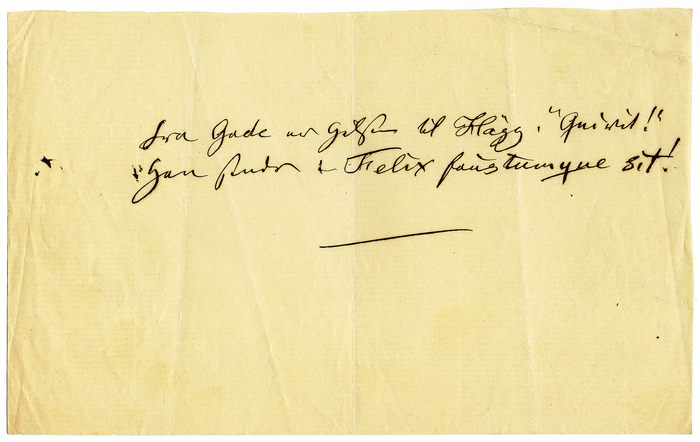 Fra Gade er Hilsen til Hägg. "Quivit!"
Han - Felix faustumque sit!